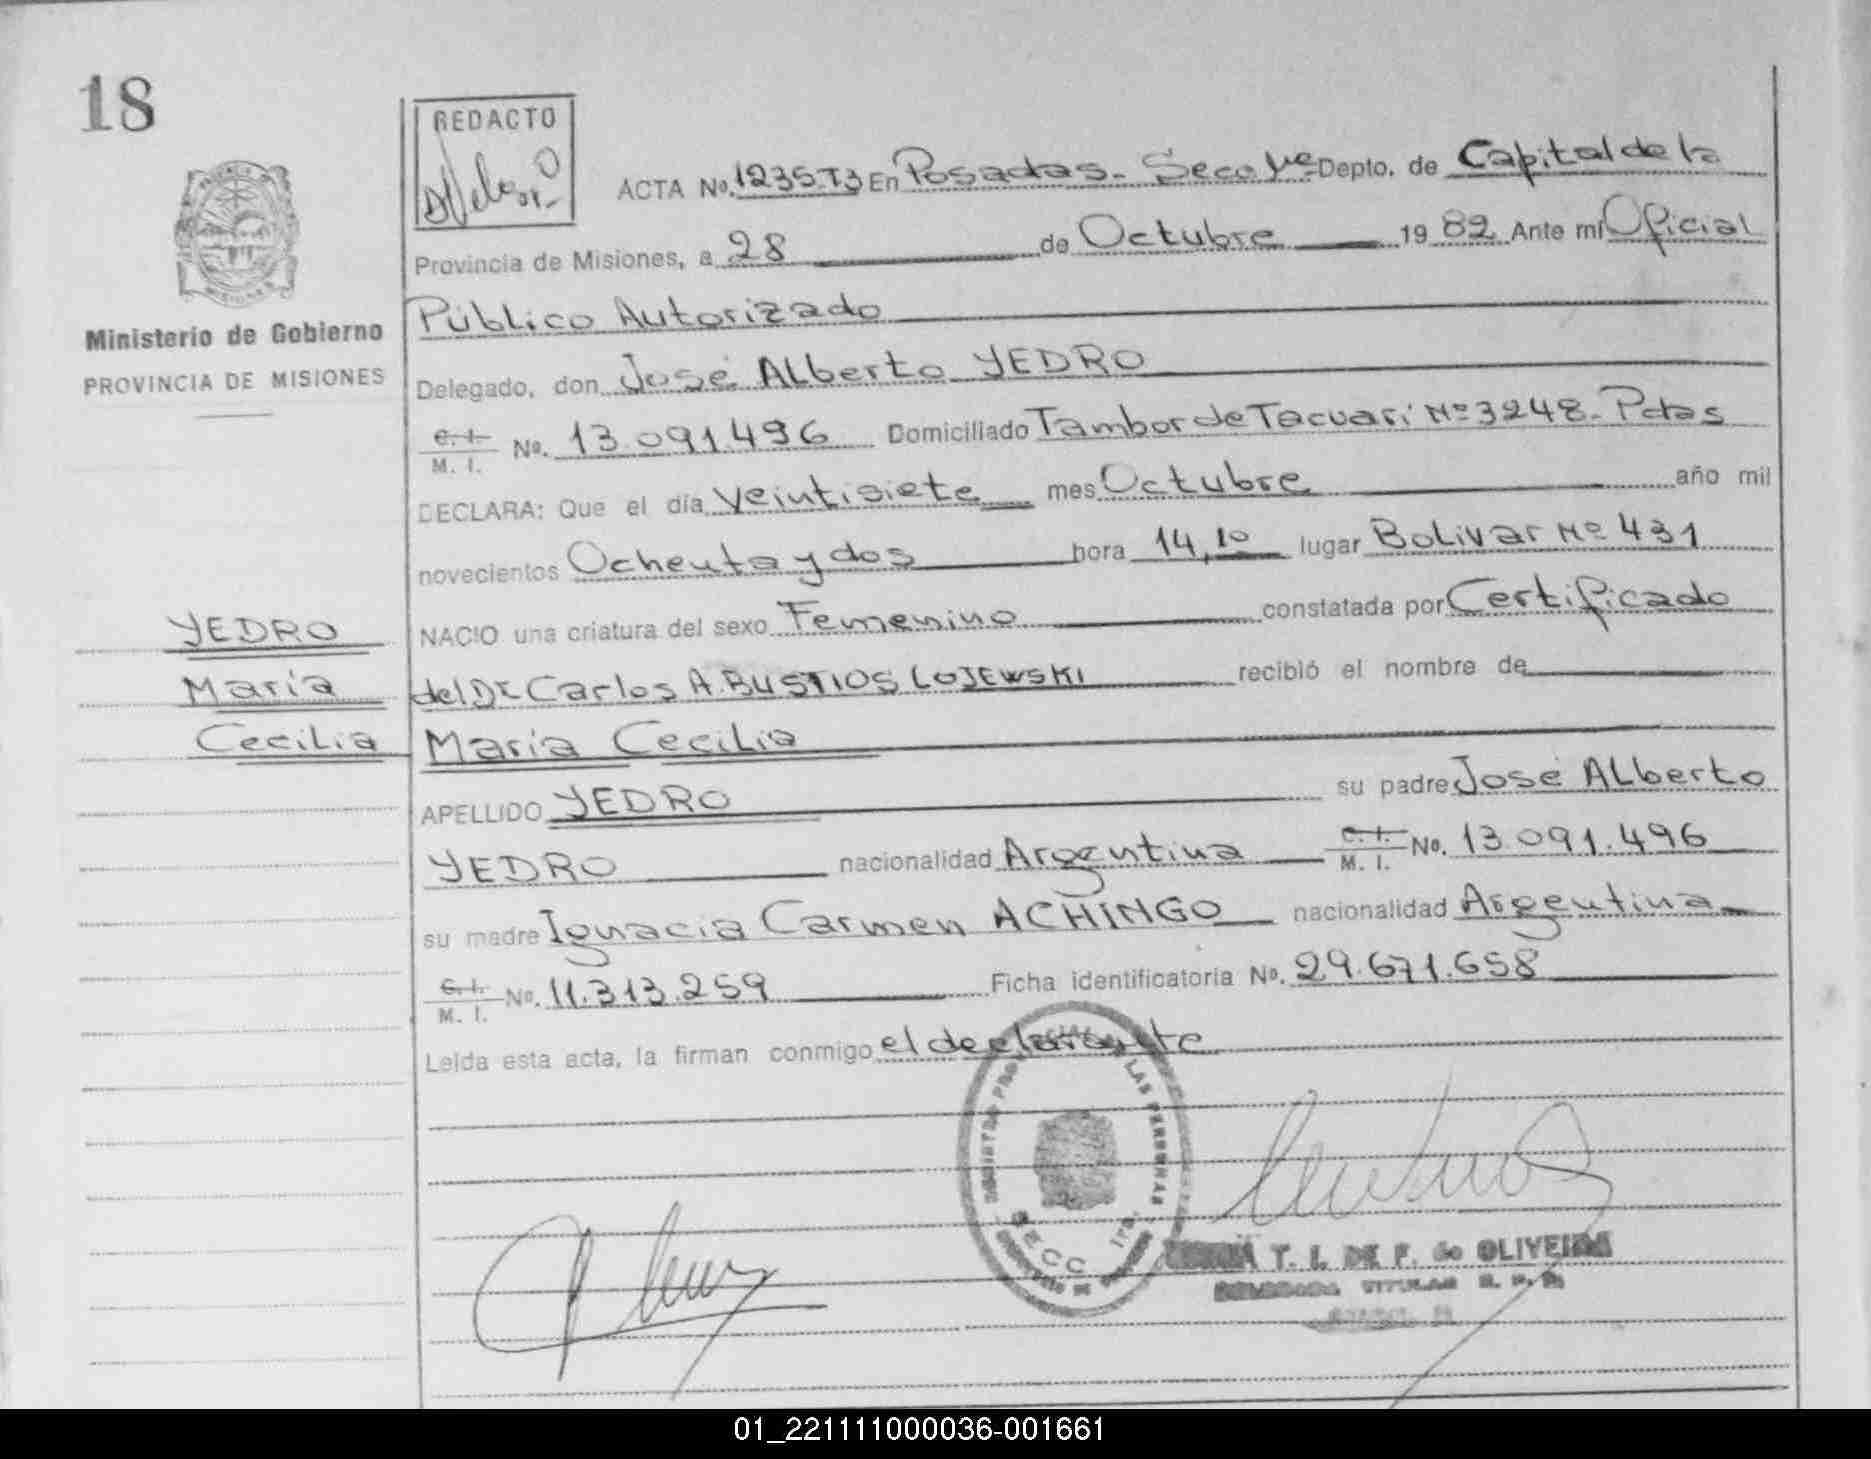 18
REDACTO
ACTA No. 1235T3 En Posadas. Secc 1ra Depto. de Capital de la
Provincia de Misiones, a 28 de Octubre 1982 Ante mi Oficial
Ministerio de Gobierno
PROVINCIA DE MISIONES
Público Autorizado
Delegado, don José Alberto YEDRO
C. I. M. I. No. 13.091.496 Domiciliado Tambor de Tacuarí Nº 3248. Pdas
DECLARA: Que el día veintisiete mes Octubre año mil
novecientos Ochenta y dos hora 14,10 lugar Bolivar Nº 431
YEDRO
María
Cecilia
NACIO una criatura del sexo Femenino constatada por Certificado
del Dr Carlos A. BUSTIOS LOJEWSKI recibió el nombre de
María Cecilia
APELLIDO YEDRO su padre José Alberto
YEDRO nacionalidad Argentina C. I. M. I. No. 13.091.496
su madre Ignacia Carmen ACHINGO nacionalidad Argentina
C. I. M. I. No. 11.313.259 Ficha identificatoria No. 29.671.658
Leida esta acta, la firman conmigo el declarante
REGISTRO LAS PERSONAS
T. I. DE F. de OLIVEIRA
DELEGADA TITULAR R. P. P.
01_221111000036-001661